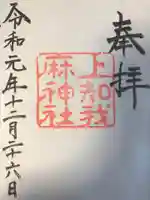 奉拝
上知我
麻神社
令和元年十二月二十六日